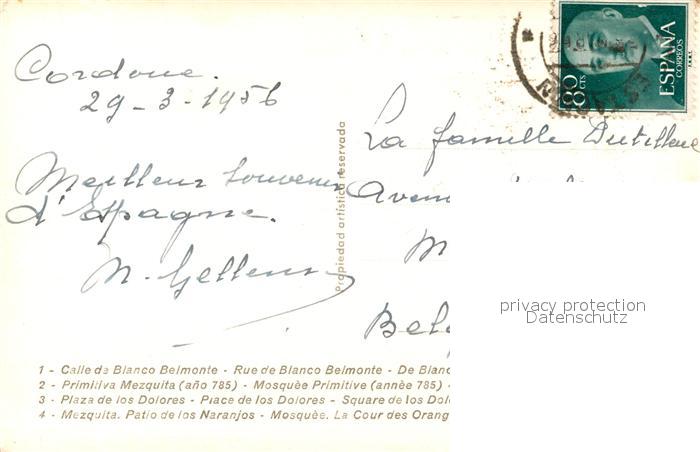 Cordoue.
29-3-1956
Meilleur souvenir
d'Espagne.
La famille
Aven
M
Bel
80
CTS
ESPAÑA
CORREOS
Propiedad artística reservada
privacy protection
Datenschutz
1 - Calle de Blanco Belmonte - Rue de Blanco Belmonte - De Blanc
2 - Primitiva Mezquita (año 785) - Mosquèe Primitive (annèe 785) -
3 - Plaza de los Dolores - Place de los Dolores - Square de los Dol
4 - Mezquita. Patio de los Naranjos - Mosquèe. La Cour des Orang